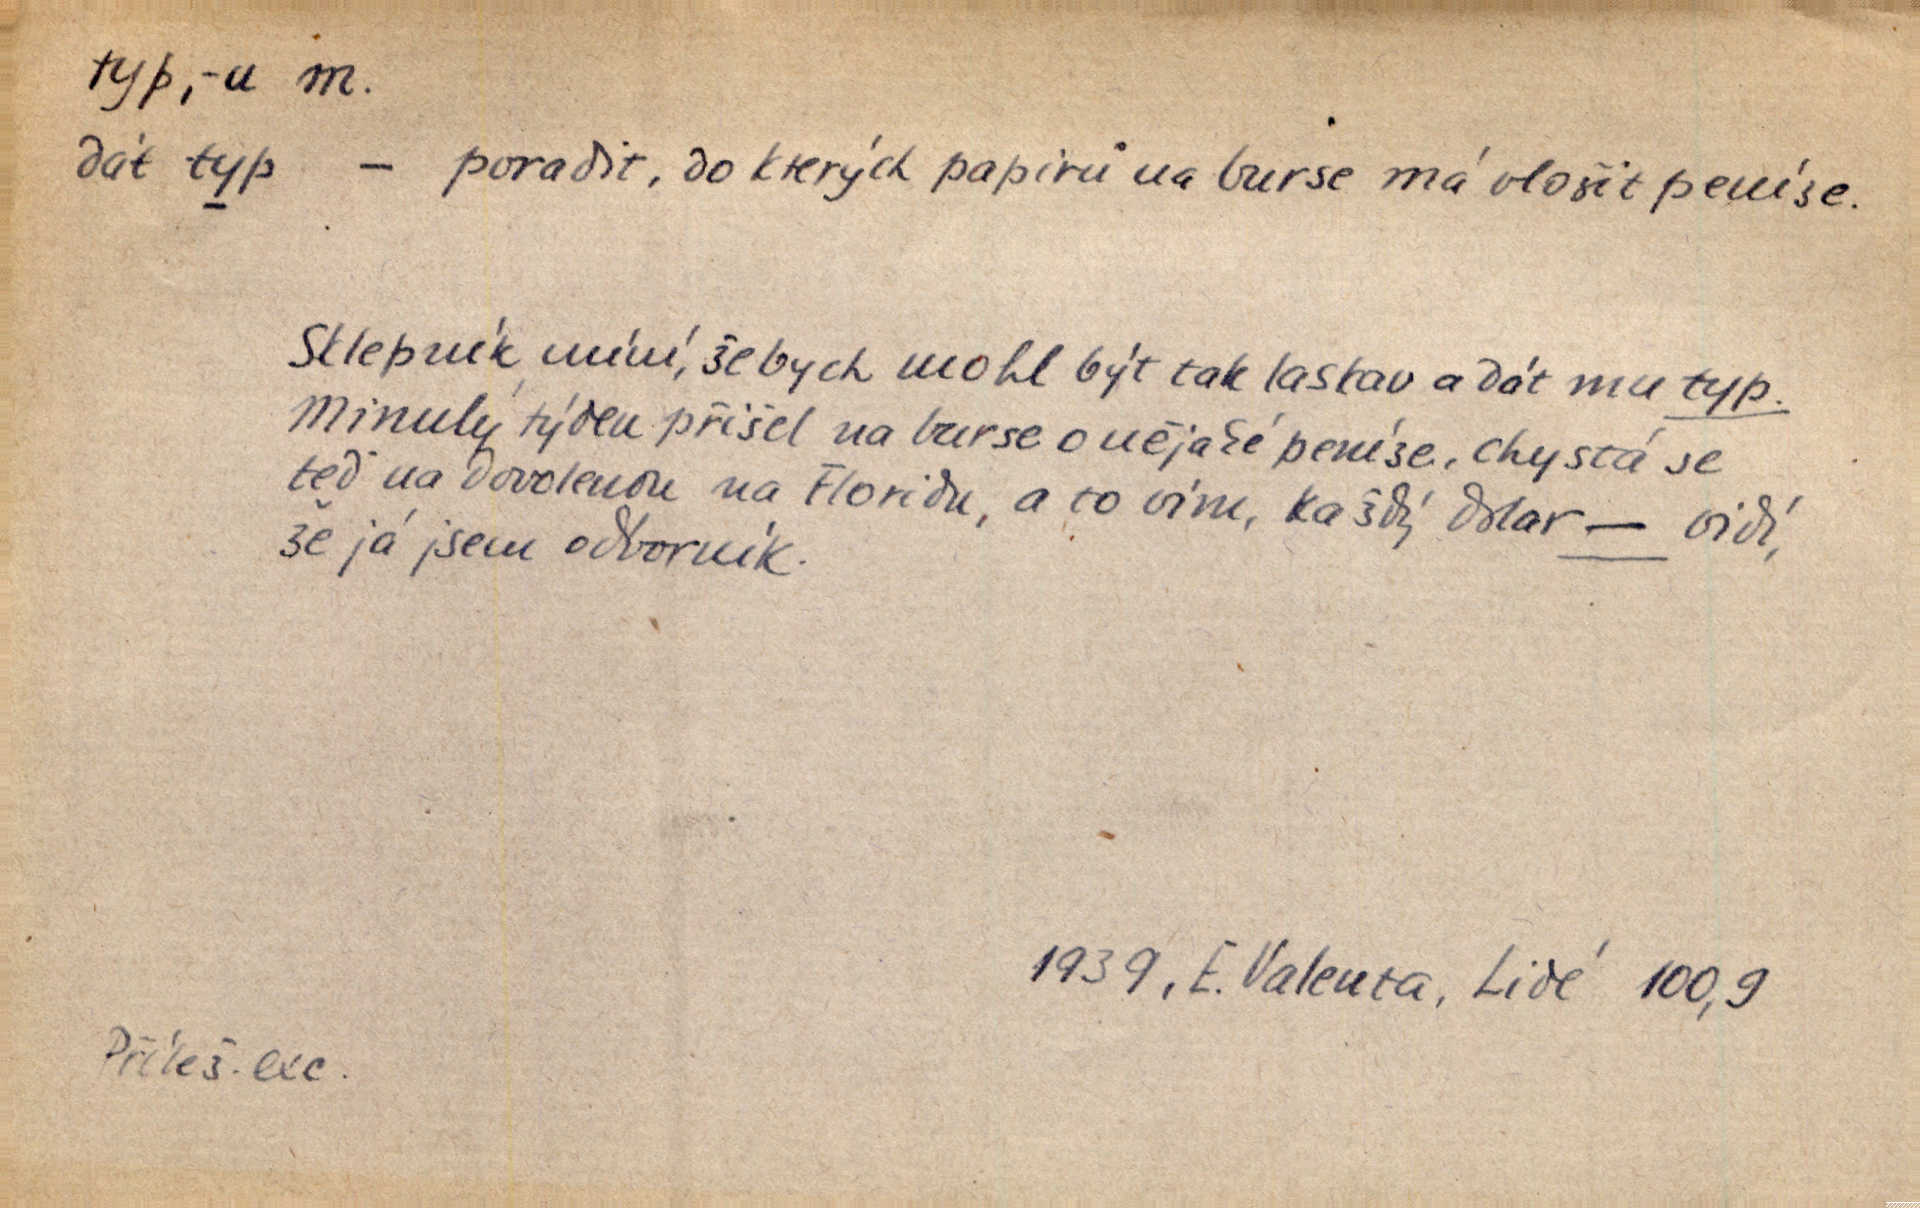 typ,-u m.
dát typ — poradit, do kterých papírů na burse má vložit peníze.
Sklepník míní, že bych mohl být tak laskav a dát mu typ.
Minulý týden přišel na burse o nějaké peníze, chystá se
teď na dovolenou na Floridu, a to vím, každý dolar — vidí,
že já jsem odborník.
1939, E. Valenta, Lidé 100,9
Příles. exc.